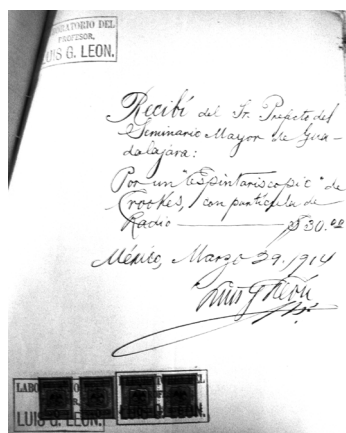 LABORATORIO DEL
PROFESOR,
LUIS G. LEON.
Recibí del Sr. Prefecto del
Seminario Mayor de Gua-
dalajara:
Por un "Espintariscopic" de
Crookes, con partícula de
Radio — $30.00
México, Marzo 29. 1914
Luis G León
LABO
EL
LUIS G. LEON.
LUIS G. LEON.